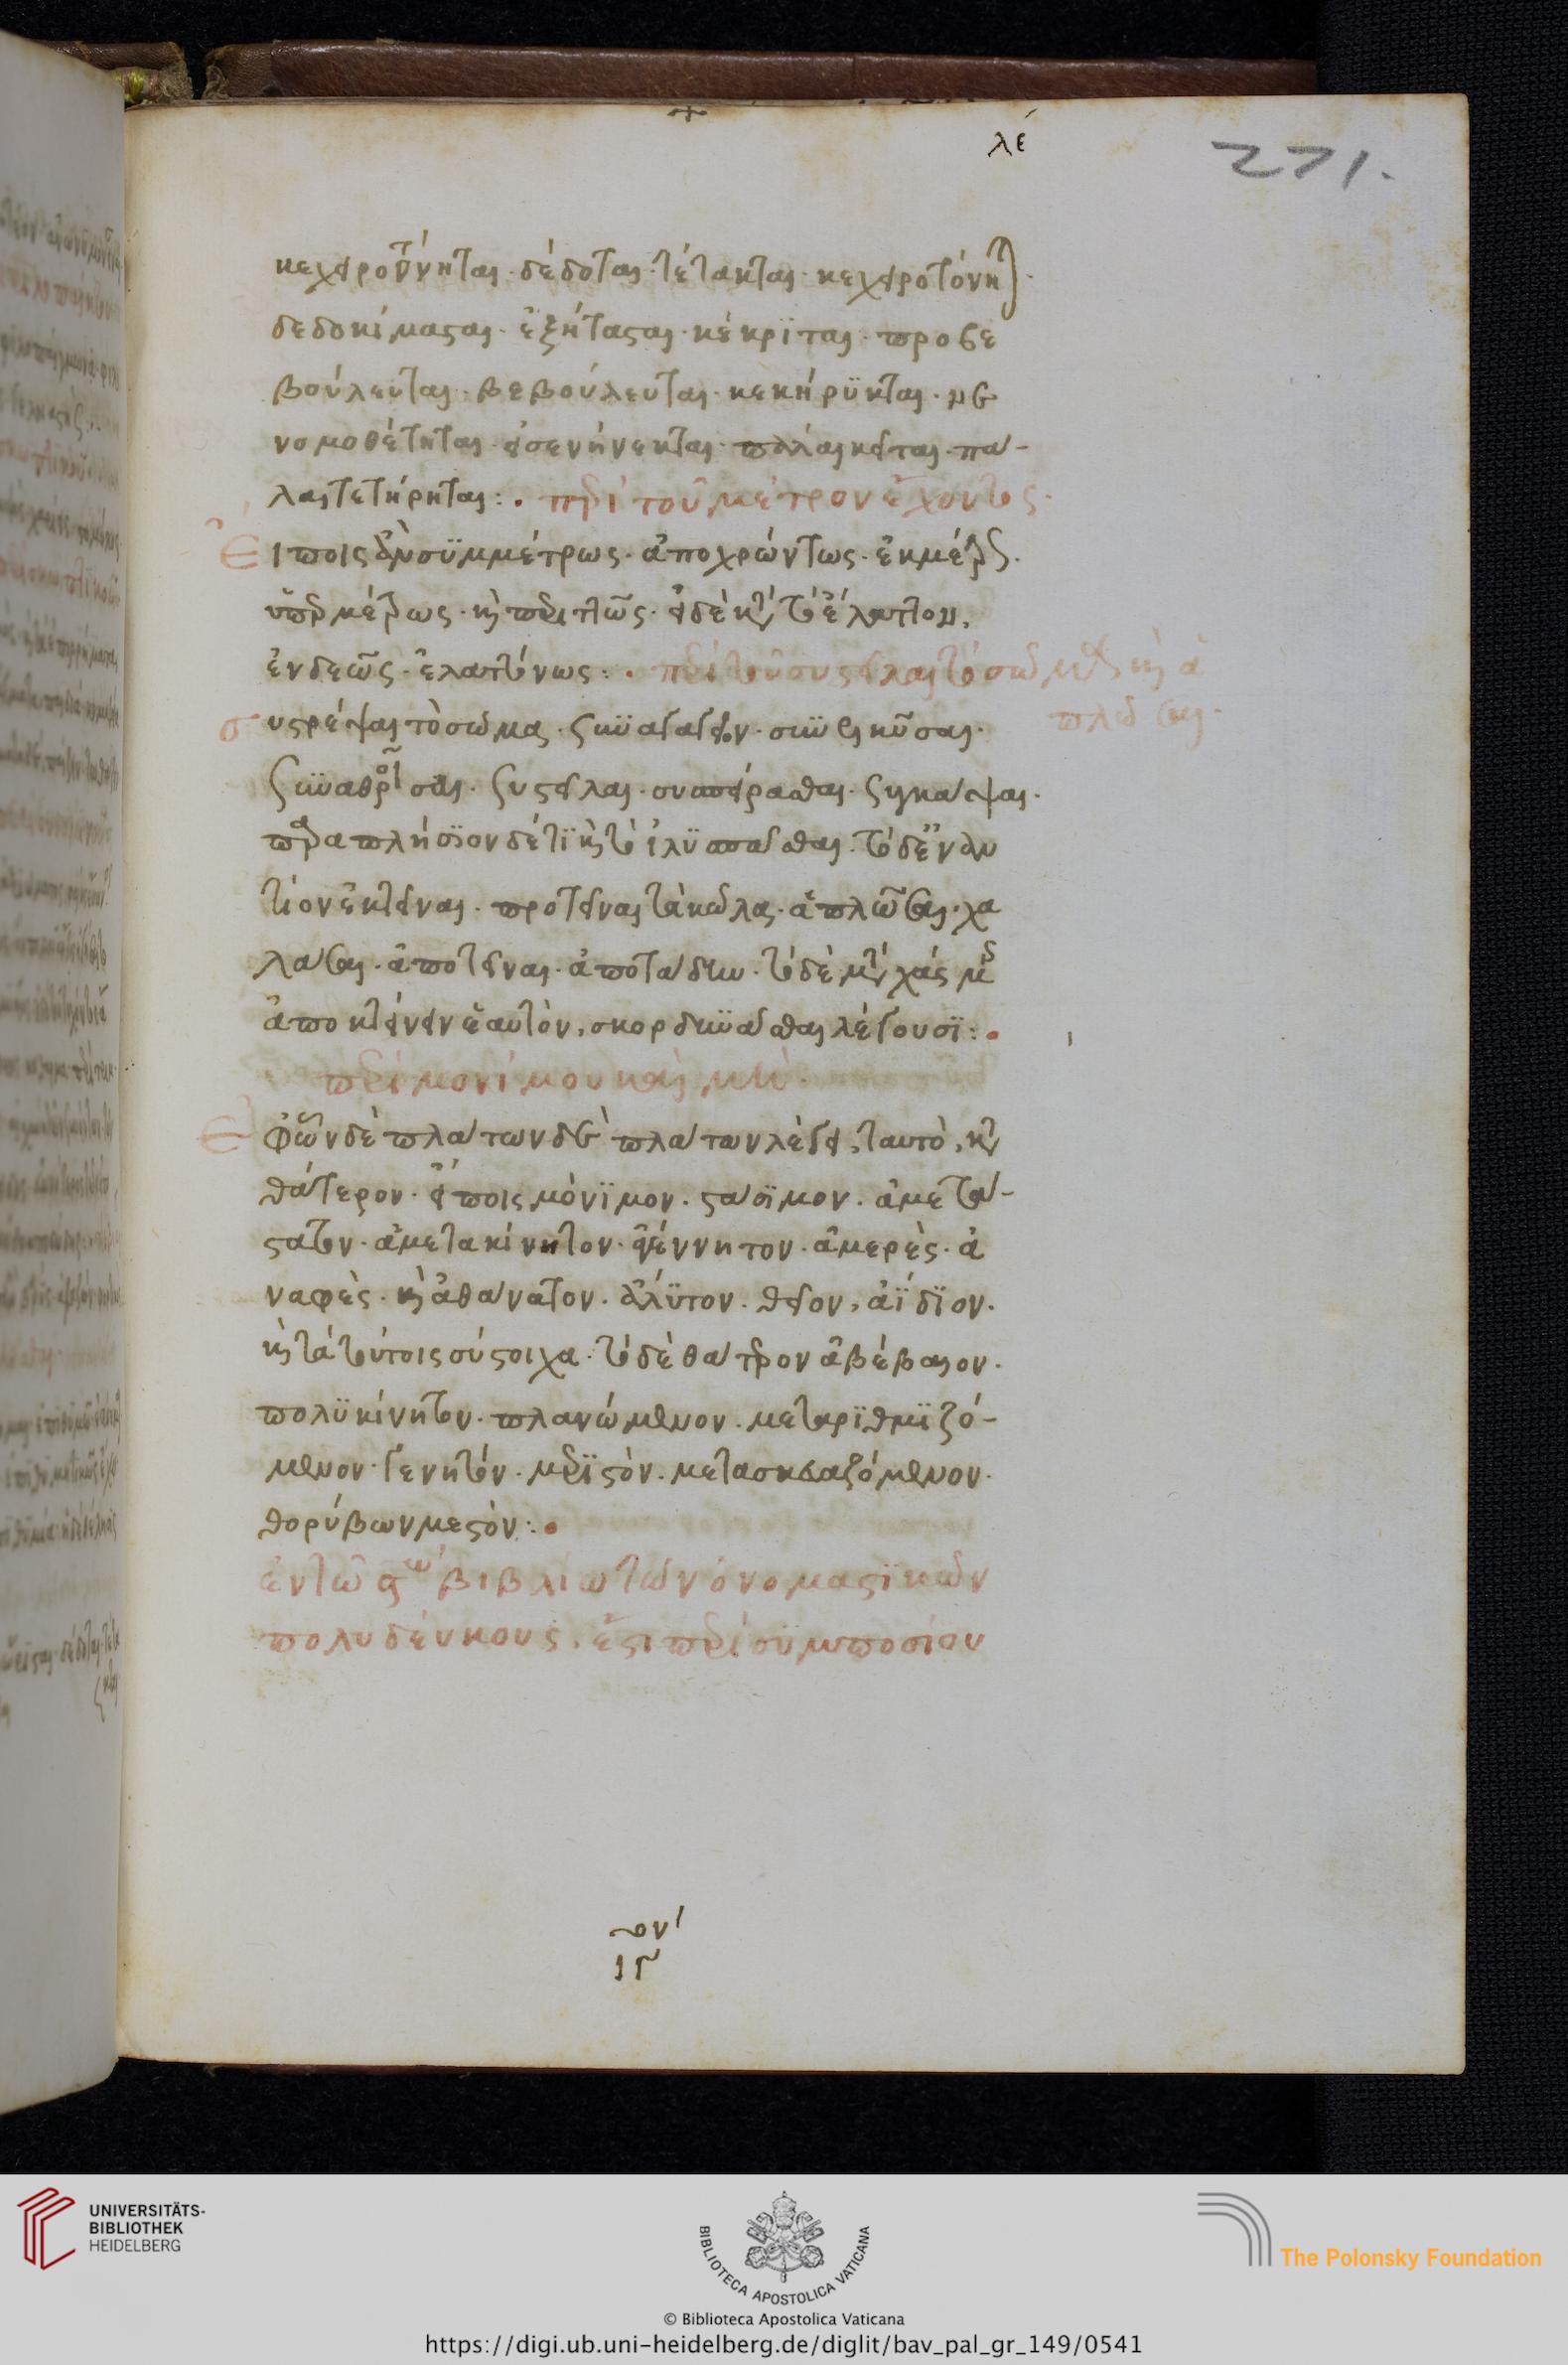 λέ
271.
κεχειροτόνηται· δέδοται· τέτακται· κεχειροτόνηται·
δεδοκίμασται· ἐξήτασται· κέκριται· προβε
βούλευται· βεβούλευται· κεκήρυκται· νε
νομοθέτηται· εἰσενήνεκται· πάλαι κεῖται· πά-
λαι τετήρηται:· περὶ τοῦ μέτρον ἔχοντος·
Εἴποις ἂν συμμέτρως· ἀποχρώντως· ἐκμέτρως·
ὑπερμέτρως· καὶ περιττῶς· εἰ δὲ κατὰ τὸ ἔλαττον,
ἐνδεῶς· ἐλαττόνως:· περὶ τοῦ συστεῖλαι τὸ σῶμα καὶ ἁ
πλῶσαι·
συστρέψαι τὸ σῶμα· συναγαγεῖν· συνελκῦσαι·
συναθροῖσαι· συστεῖλαι· συσπειρᾶσθαι· συγκάμψαι·
παραπλήσιον δέ τι καὶ τὸ ἰλυσπᾶσθαι· τὸ δὲ ἐναν
τίον ἐκτεῖναι· προτεῖναι τὰ κῶλα· ἁπλῶσαι· χα
λάσαι· ἀποτεῖναι· ἀποτάδην· τὸ δὲ μετὰ χάσμης
ἀποκτείνειν ἑαυτὸν, σκορδινᾶσθαι λέγουσι:·
περὶ μονίμου καὶ μή·
Ἐφ' ὧν δὲ πλάτων ὁ πλάτων λέγει, ταυτὸ, καὶ
θάτερον· εἴποις μόνιμον· στάσιμον· ἀμετά-
στατον· ἀμετακίνητον· ἀγέννητον· ἀμερὲς· ἀ
ναφὲς· καὶ ἀθάνατον· ἄλυτον· θεῖον, ἀΐδιον·
καὶ τὰ τούτοις σύστοιχα· τὸ δὲ θάτερον ἀβέβαιον·
πολυκίνητον· πλανώμενον· μεταρυθμιζό-
μενον· γενητόν· μεριστὸν· μετασκευαζόμενον·
θορύβων μεστὸν:·
ἐν τῷ ϛῳ βιβλίω τῶν ὀνομαστικῶν
πολυδεύκους· ἔστι περὶ συμποσίου
ιγ
UNIVERSITÄTS-
BIBLIOTHEK
HEIDELBERG
BIBLIOTECA APOSTOLICA VATICANA
The Polonsky Foundation
© Biblioteca Apostolica Vaticana
https://digi.ub.uni-heidelberg.de/diglit/bav_pal_gr_149/0541